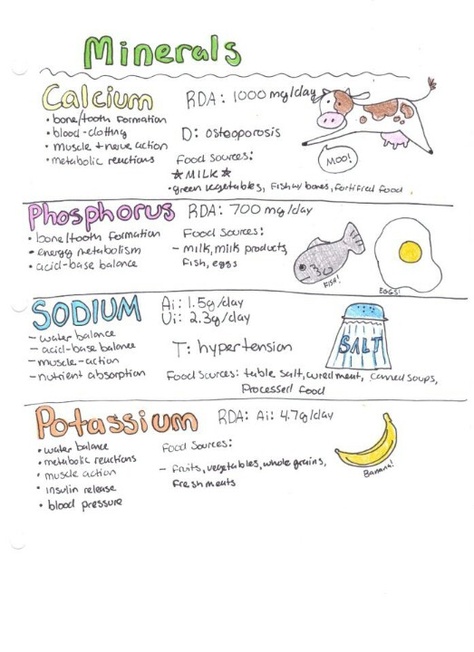 Minerals
Calcium RDA: 1000 mg/day
• bone/tooth formation
• blood-clotting
• muscle + nerve action
• metabolic reactions
D: osteoporosis
Food Sources:
★MILK★
• green vegetables, Fish w/ bones, fortified food
MOO!
Phosphorus RDA: 700 mg/day
• bone/tooth formation
• energy metabolism
• acid-base balance
Food Sources:
- milk, milk products,
fish, eggs
FISH!
EGGS!
SODIUM Ai: 1.5g/day
Ui: 2.3g/day
- water balance
- acid-base balance
- muscle-action
- nutrient absorption
T: hypertension
Food Sources: table salt, cured meat, canned soups,
Processed food
SALT
Potassium RDA: Ai: 4.7g/day
• water balance
• metabolic reactions
• muscle action
• insulin release
• blood pressure
Food Sources:
- fruits, vegetables, whole grains,
fresh meats
Banana!